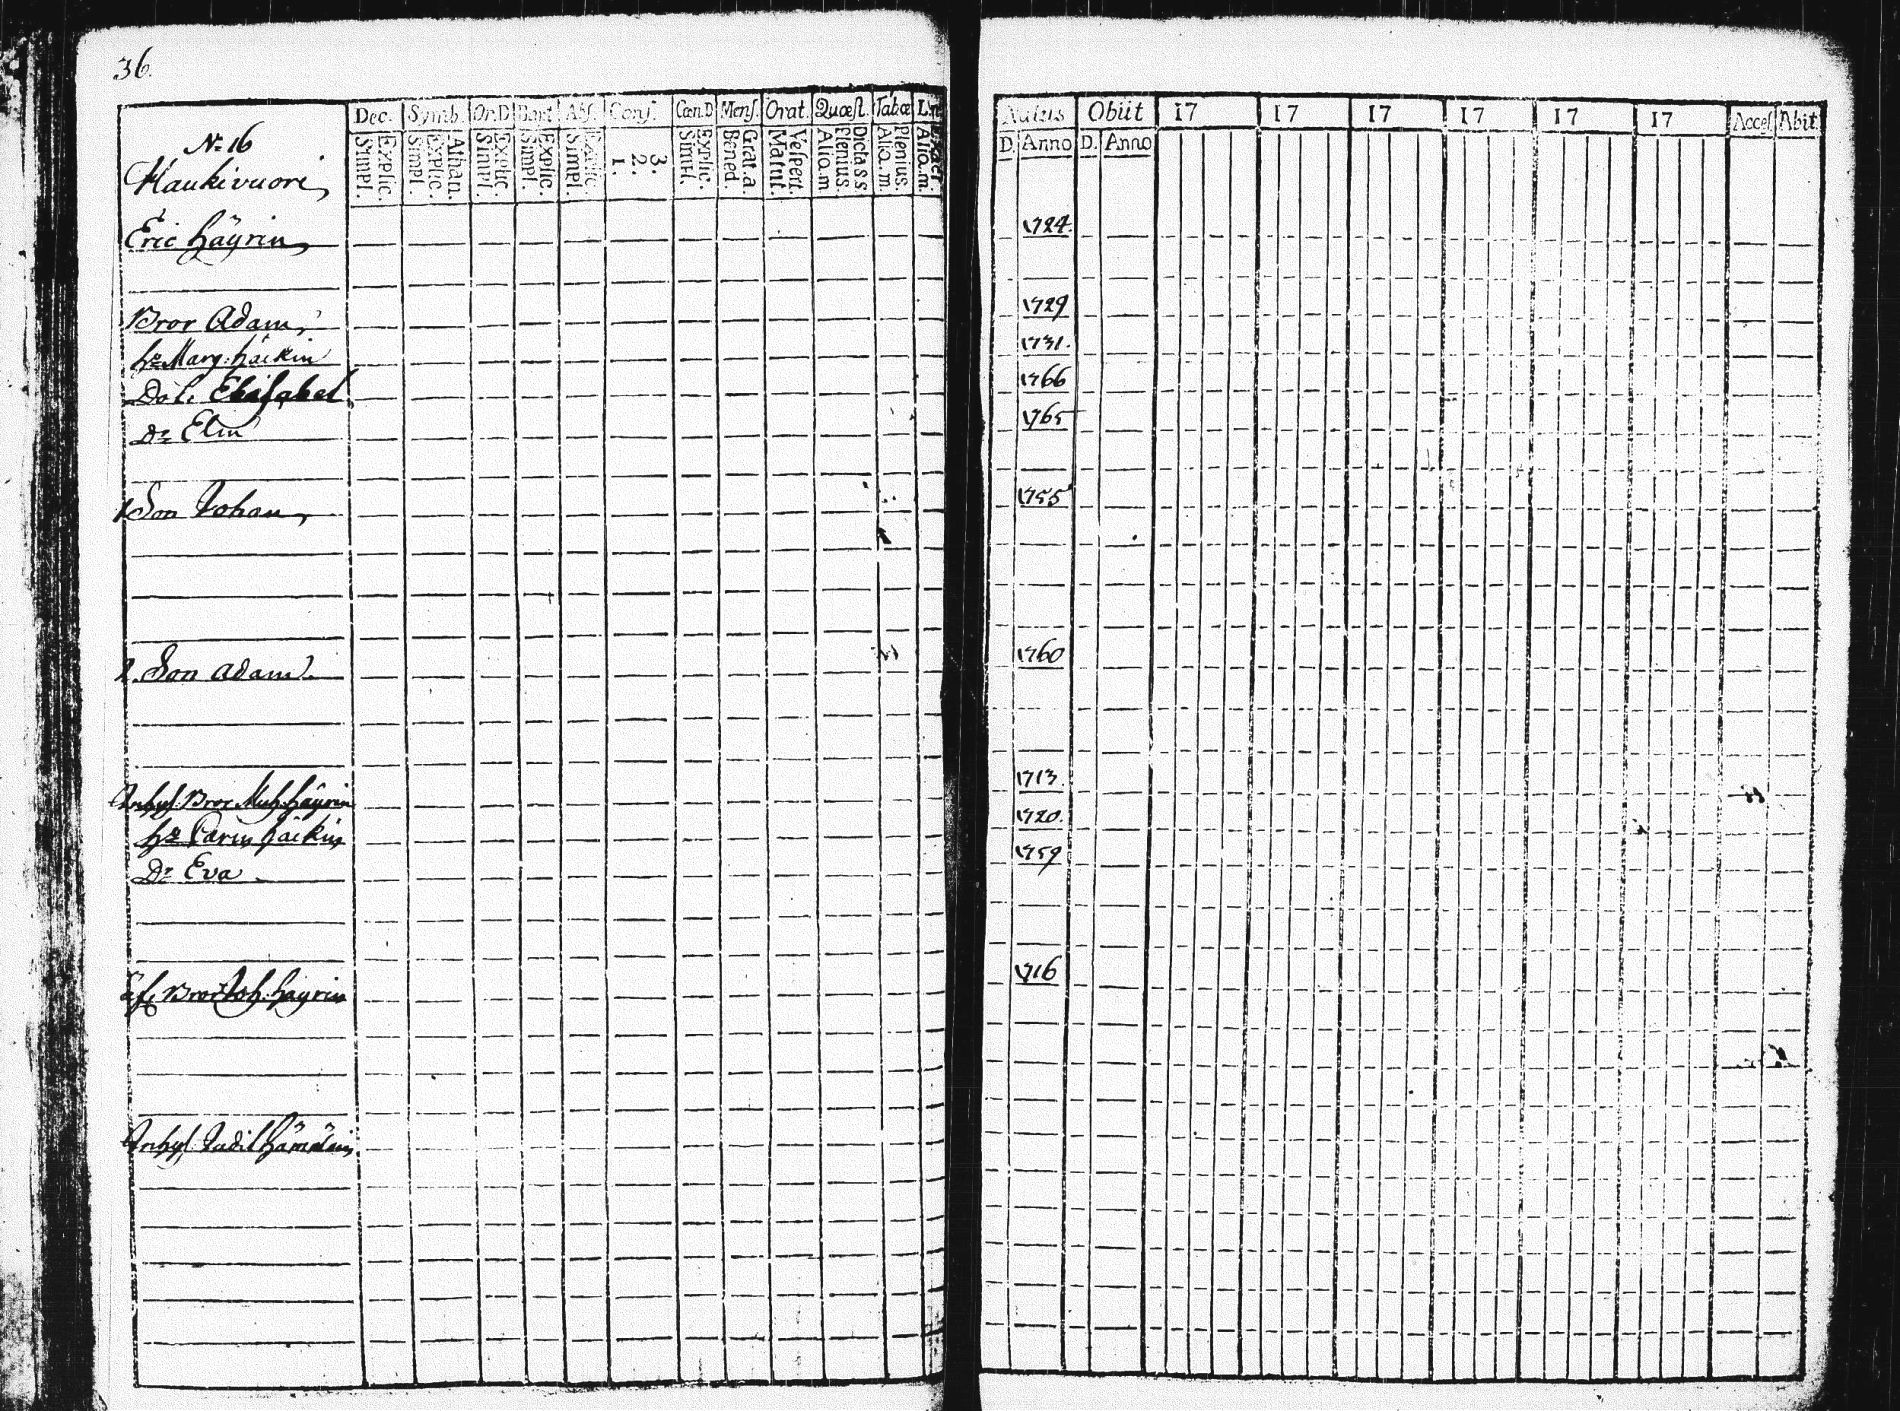 36.
Dec. Symb. Or.D Bapt. Abs. Conf. Cœn.D Mens. Orat. Quæst. Tabæ
Simpl. Explic. Simpl. Explic. Athan. Simpl. Explic. Simpl. Explic. Simpl. Explic. 1. 2. 3. Simpl. Explic. Bened. Grat. a. Matut. Vespert. Alio. m Plenius. Dicta s.s. Alio. m. Plenius. Alio. m.
Natus Obiit 17 17 17 17 17 17 Acces Abit
D. Anno D. Anno
No 16
Haukivuori
Eric Häyrin 1724.
Bror Adam 1729
hu Marg: häikin 1731.
Dot. Elisabet 1766
Dr Elin 1765
1 Son Johan 1755
2. Son Adam 1760
Inhys. Bror Mich. häyrin 1713.
hu Carin häikin 1720.
Dr Eva 1759
Bror Joh. häyrin 1716
Inhys.